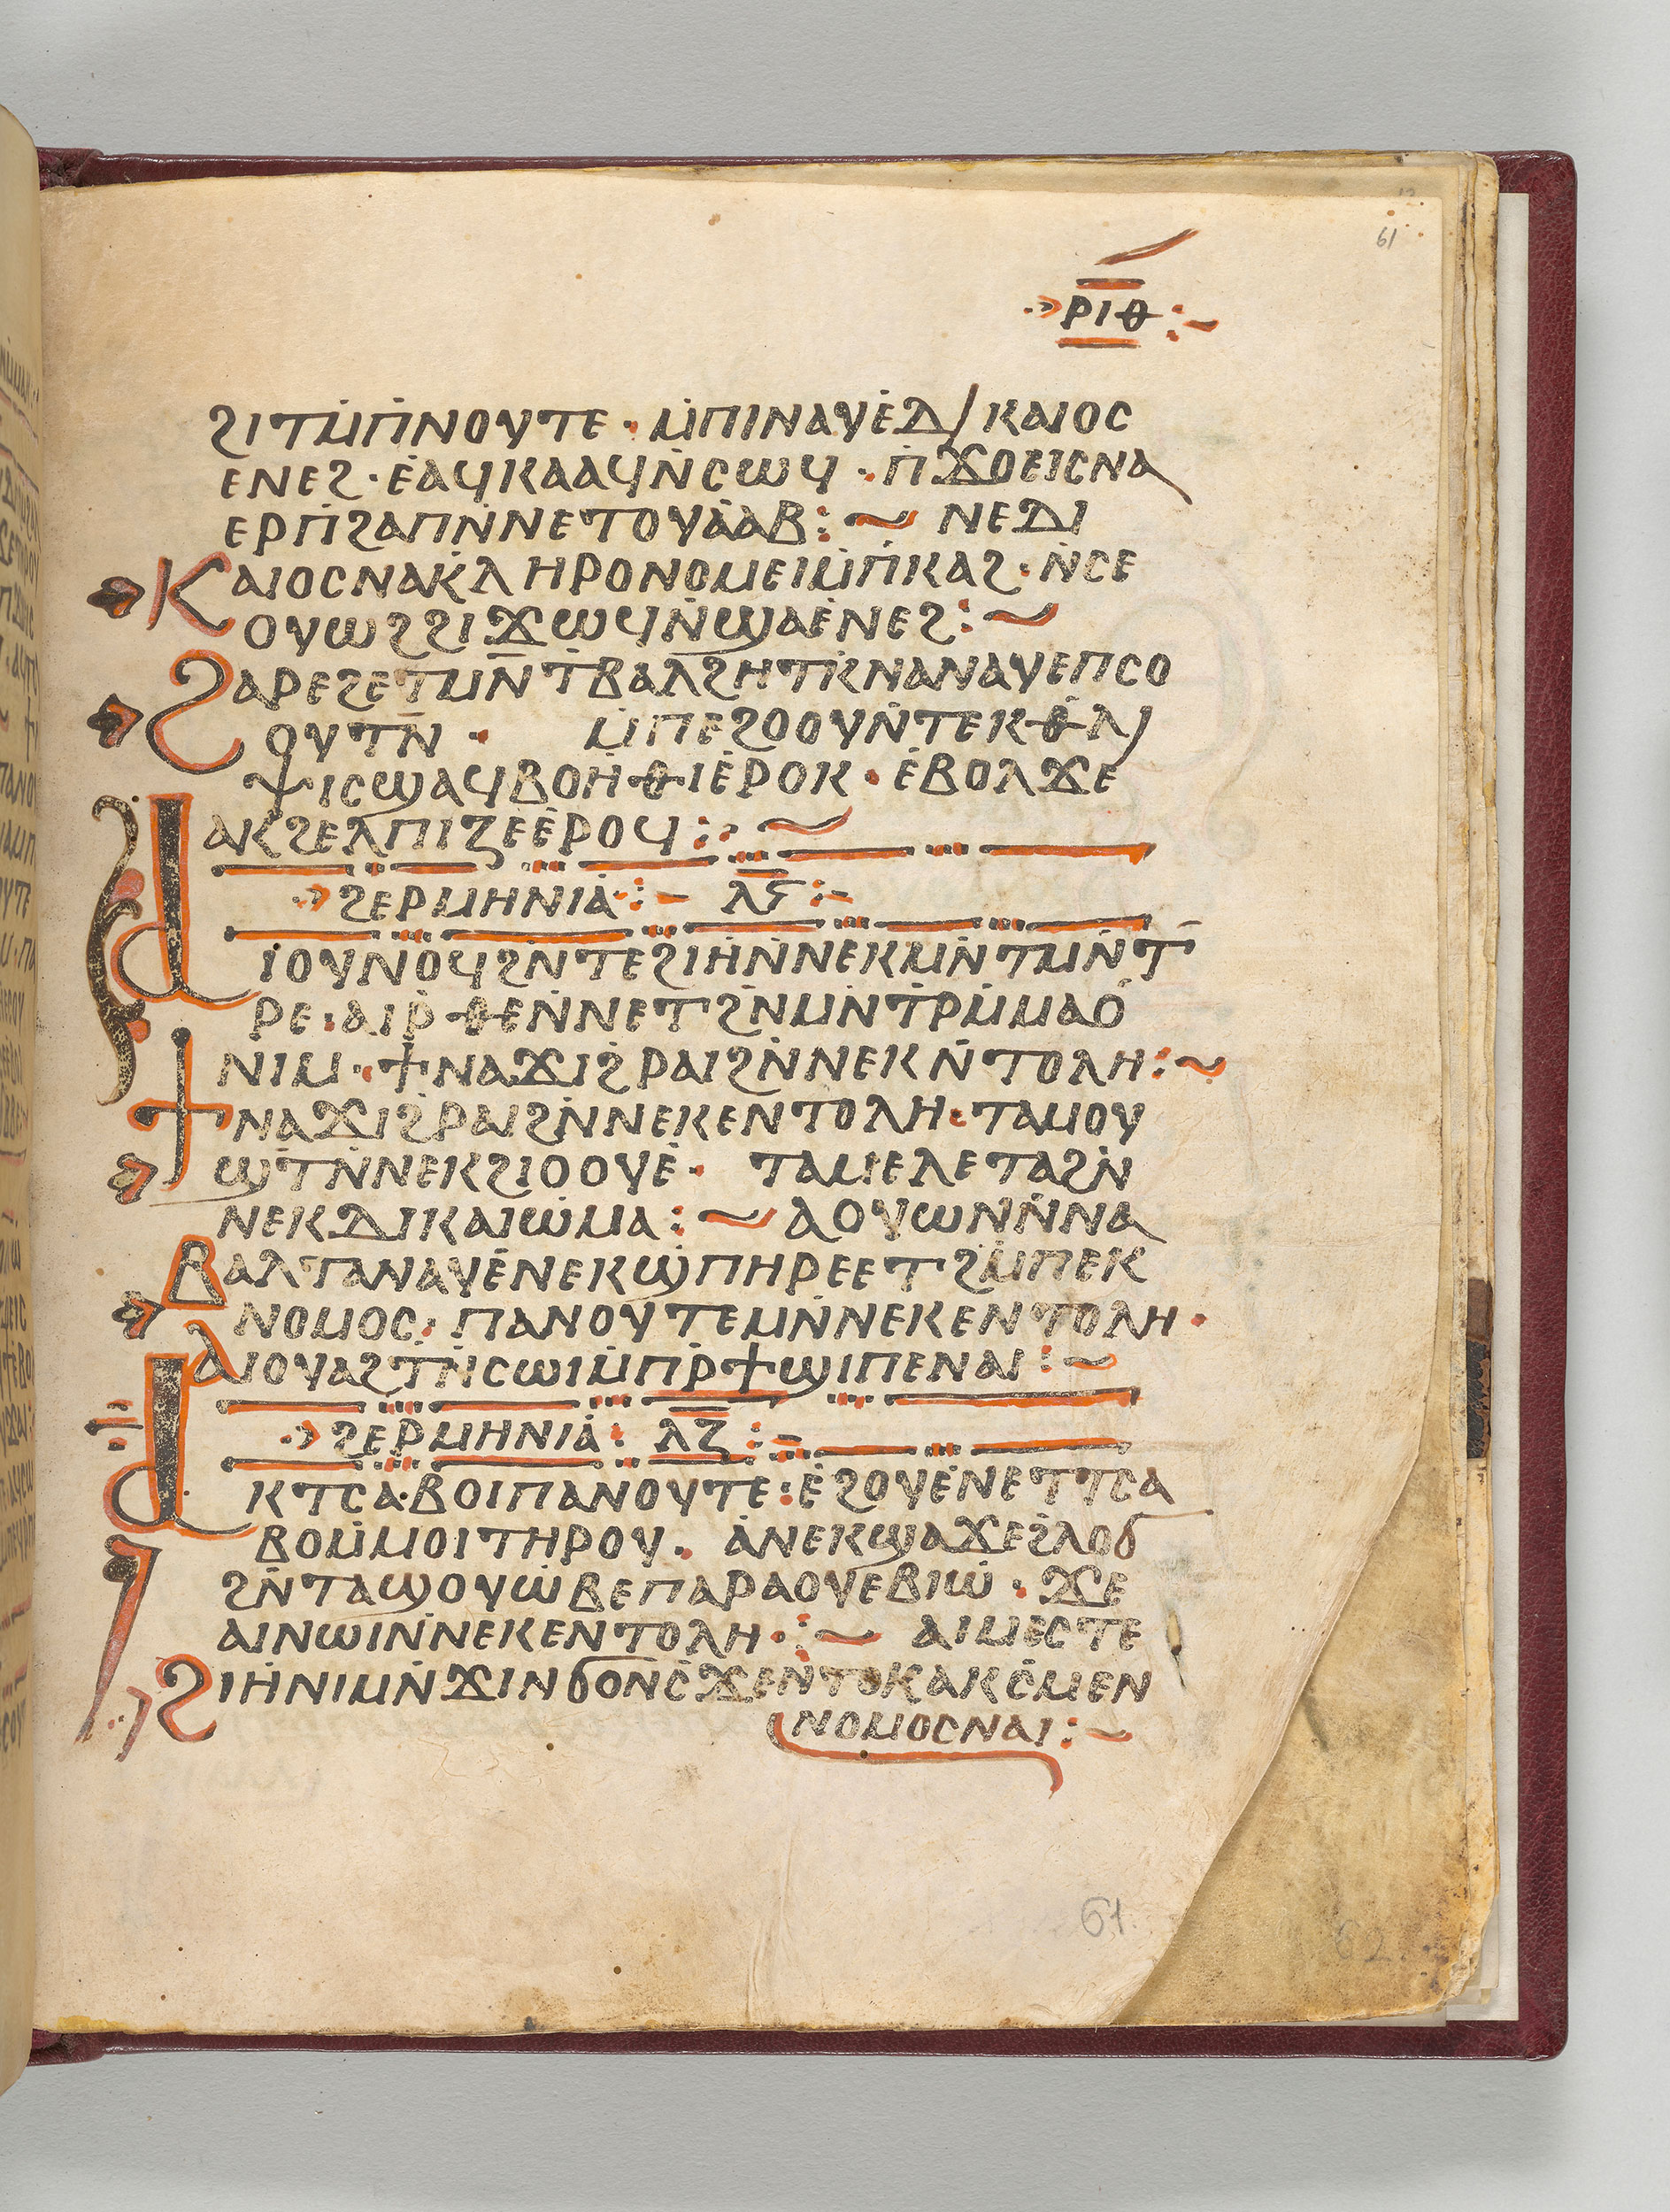 61
ⲣⲓⲑ
ϩⲓⲧⲙⲡⲛⲟⲩⲧⲉ · ⲙⲡⲓⲛⲁⲩⲉⲇⲓⲕⲁⲓⲟⲥ
ⲉⲛⲉϩ · ⲉⲁϥⲕⲁⲁϥⲛⲥⲱϥ · ⲡϫⲟⲉⲓⲥⲛⲁ
ⲉⲣⲡϩⲁⲡⲛⲛⲉⲧⲟⲩⲁⲁⲃ : ~ ⲛⲉⲇⲓ
ⲕⲁⲓⲟⲥⲛⲁⲕⲗⲏⲣⲟⲛⲟⲙⲉⲓⲙⲡⲕⲁϩ · ⲛⲥⲉ
ⲟⲩⲱϩϩⲓϫⲱϥⲛϣⲁⲉⲛⲉϩ : ~
ϩⲁⲣⲉϩⲉⲧⲙⲛⲧⲃⲁⲗϩⲏⲧⲕⲛⲁⲛⲁⲩⲉⲡⲥⲟ
ⲟⲩⲧⲛ · ⲙⲡⲉϩⲟⲟⲩⲛⲧⲉⲕⲑⲗⲓ
ⲯⲓⲥϣⲁϥⲃⲟⲏⲑⲓⲉⲣⲟⲕ · ⲉⲃⲟⲗϫⲉ
ⲁⲕϩⲉⲗⲡⲓⲍⲉⲉⲣⲟϥ : ~
ϩⲉⲣⲙⲏⲛⲓⲁ : – ⲗⲋ : –
ⲁⲓⲟⲩⲛⲟϥϩⲛⲧⲉϩⲓⲏⲛⲛⲉⲕⲙⲛⲧⲙⲛⲧ
ⲣⲉ · ⲁⲓⲣⲑⲉⲛⲛⲉⲧϩⲛⲙⲛⲧⲣⲙⲙⲁⲟ
ⲛⲓⲙ · ϯⲛⲁϫⲓϩⲣⲁⲓϩⲛⲛⲉⲕⲛⲧⲟⲗⲏ : ~
ϯⲛⲁϫⲓϩⲣⲁⲓϩⲛⲛⲉⲕⲉⲛⲧⲟⲗⲏ · ⲧⲁⲙⲟⲩ
ϣⲧⲛⲛⲉⲕϩⲓⲟⲟⲩⲉ · ⲧⲁⲙⲉⲗⲉⲧⲁϩⲛ
ⲛⲉⲕⲇⲓⲕⲁⲓⲱⲙⲁ : ~ ⲁⲟⲩⲱⲛⲛⲛⲁ
ⲃⲁⲗⲧⲁⲛⲁⲩⲉⲛⲉⲕϣⲡⲏⲣⲉⲉⲧϩⲙⲡⲉⲕ
ⲛⲟⲙⲟⲥ · ⲡⲁⲛⲟⲩⲧⲉⲙⲛⲛⲉⲕⲉⲛⲧⲟⲗⲏ ·
ⲁⲓⲟⲩⲁϩⲧⲛⲥⲱⲓⲙⲡⲣϯϣⲓⲡⲉⲛⲁⲓ : ~
ϩⲉⲣⲙⲏⲛⲓⲁ : ⲗⲍ : –
ⲁⲕⲧⲥⲁ·ⲃⲟⲓⲡⲁⲛⲟⲩⲧⲉ : ⲉϩⲟⲩⲉⲛⲉⲧⲧⲥⲁ
ⲃⲟⲙⲙⲟⲓⲧⲏⲣⲟⲩ · ⲁⲛⲉⲕϣⲁϫⲉϩⲗⲟϭ
ϩⲛⲧⲁϣⲟⲩⲱⲃⲉⲡⲁⲣⲁⲟⲩⲉⲃⲓⲱ · ϫⲉ
ⲁⲓⲛⲱⲓⲛⲛⲉⲕⲉⲛⲧⲟⲗⲏ · : ~ ⲁⲓⲙⲉⲥⲧⲉ
ϩⲓⲏⲛⲓⲙⲛϫⲓⲛϭⲟⲛⲥϫⲉⲛⲧⲟⲕⲁⲕⲥⲙⲉⲛ
ⲛⲟⲙⲟⲥⲛⲁⲓ : ~
61
62